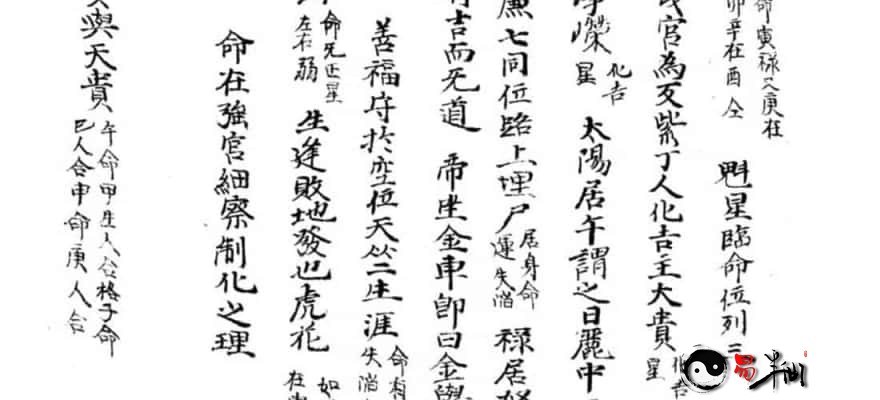 命寅祿又庚在
卯辛在酉仝
魁星臨命位列三
官為又紫丁人化吉主大貴
化吉
星
星
化吉
太陽居午謂之日麗中
廉七同位路上埋尸
居身命
運失陷
祿居奴
吉而无道 帝坐金車卽曰金
善福守於空位天丛二生涯
命有
失陷
命无正星
左右弱
生逢敗地發也虎花
如
在
命在強官細察制化之理
與天貴
午命甲生人合格子命
巳人合申命庚人合
易半仙